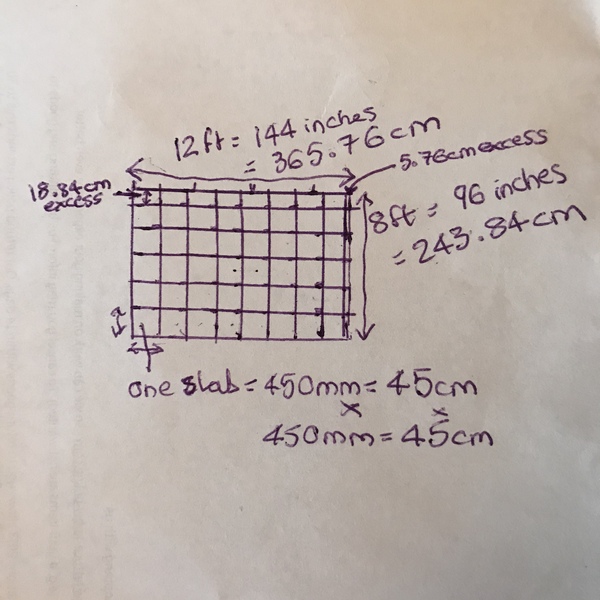 12ft = 144 inches
= 365.76cm
5.76cm excess
18.84cm
excess
8ft = 96 inches
= 243.84cm
one slab = 450mm = 45cm
x x
450mm = 45cm